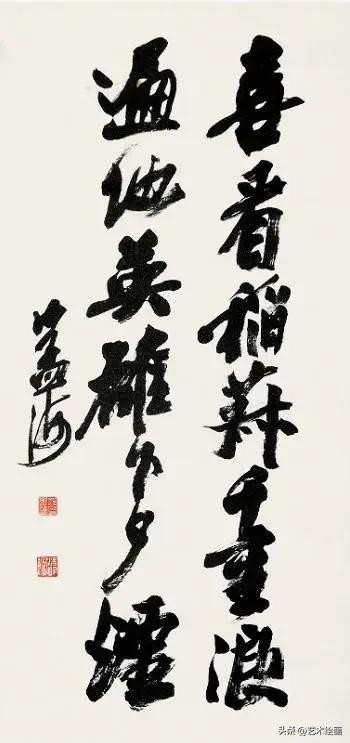 喜看稻菽千重浪
遍地英雄下夕煙
沙孟海
头条@艺术绘画